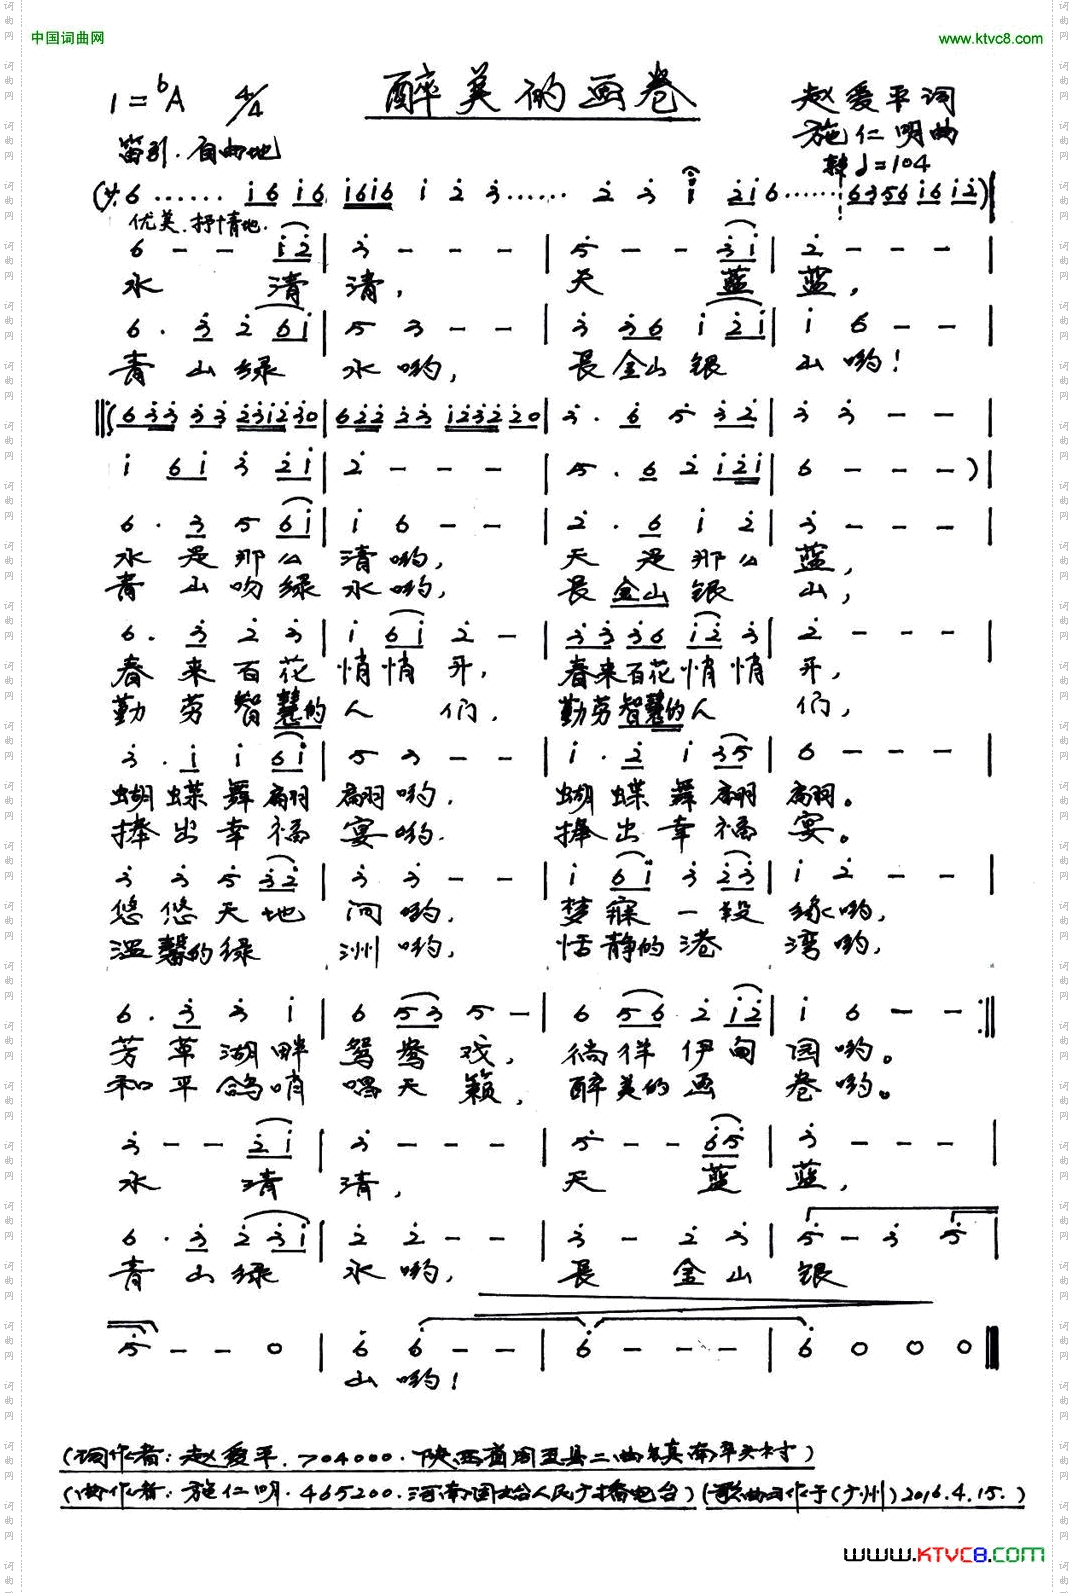 中国词曲网 www.ktvc8.com
醉美的画卷
1=♭A 4/4
赵爱平词
施仁明曲
笛引.自由地
♩=104
(サ6······i6 i6 i6i6 i 2 3······2 3 i 2i6······6356 i6 i2)|
优美.抒情地.
6 - - i2 | 3 - - - | 5 - - 3i | 2 - - - |
水 清 清, 天 蓝 蓝,
6. 3 2 6i | 5 3 - - | 3 36 i 2i | i 6 - - |
青 山 绿 水 哟, 長 金山 银 山 哟!
‖(6 33 33 2312 30 | 6 22 23 1232 20 | 3. 6 5 32 | 3 3 - - |
i 6i 3 2i | 2 - - - | 5. 6 2 i2i | 6 - - -)|
6. 3 5 6i | i 6 - - | 2. 6 i 2 | 3 - - - |
水 是 那 么 清 哟, 天 是 那 么 蓝,
青 山 吻 绿 水 哟, 長 金山 银 山,
6. 3 2 3 | i 6i 2 - | 33 36 i2 3 | 2 - - - |
春 来 百 花 悄 悄 开, 春来百花悄 悄 开,
勤 劳 智 慧的 人 们, 勤劳智慧的人 们,
3. i i 6i | 5 3 - - | i. 2 i 35 | 6 - - - |
蝴 蝶 舞 翩 翩 哟. 蝴 蝶 舞 翩 翩。
捧 出 幸 福 宴 哟. 捧 出 幸 福 宴。
3 3 5 32 | 3 3 - - | i 6i 3 23 | i 2 - - |
悠 悠 天 地 间 哟. 梦 寐 一 段 缘 哟,
温 馨的 绿 洲 哟, 恬 静的 港 湾 哟,
6. 3 3 i | 6 53 5 - | 6 56 2 i2 | i 6 - - :‖
芳 草 湖 畔 鸳 鸯 戏, 徜 徉 伊 甸 园 哟。
和 平 鸽 哨 唱 天 籁, 醉 美的 画 卷 哟。
3 - - 2i | 3 - - - | 5 - - 65 | 3 - - - |
水 清 清, 天 蓝 蓝,
6. 3 2 3i | 2 2 - - | 3 - 2 3 | 5 - 3 5 |
青 山 绿 水 哟, 長 金 山 银
5 - - 0 | 6 6 - - | 6 - - - | 6 0 0 0 ‖
山 哟!
(词作者:赵爱平.704000.陕西省周至县二曲镇南平头村)
(曲作者:施仁明.465200.河南固始人民广播电台)(歌曲写作于(广州)2016.4.15.)
www.KTVC8.COM